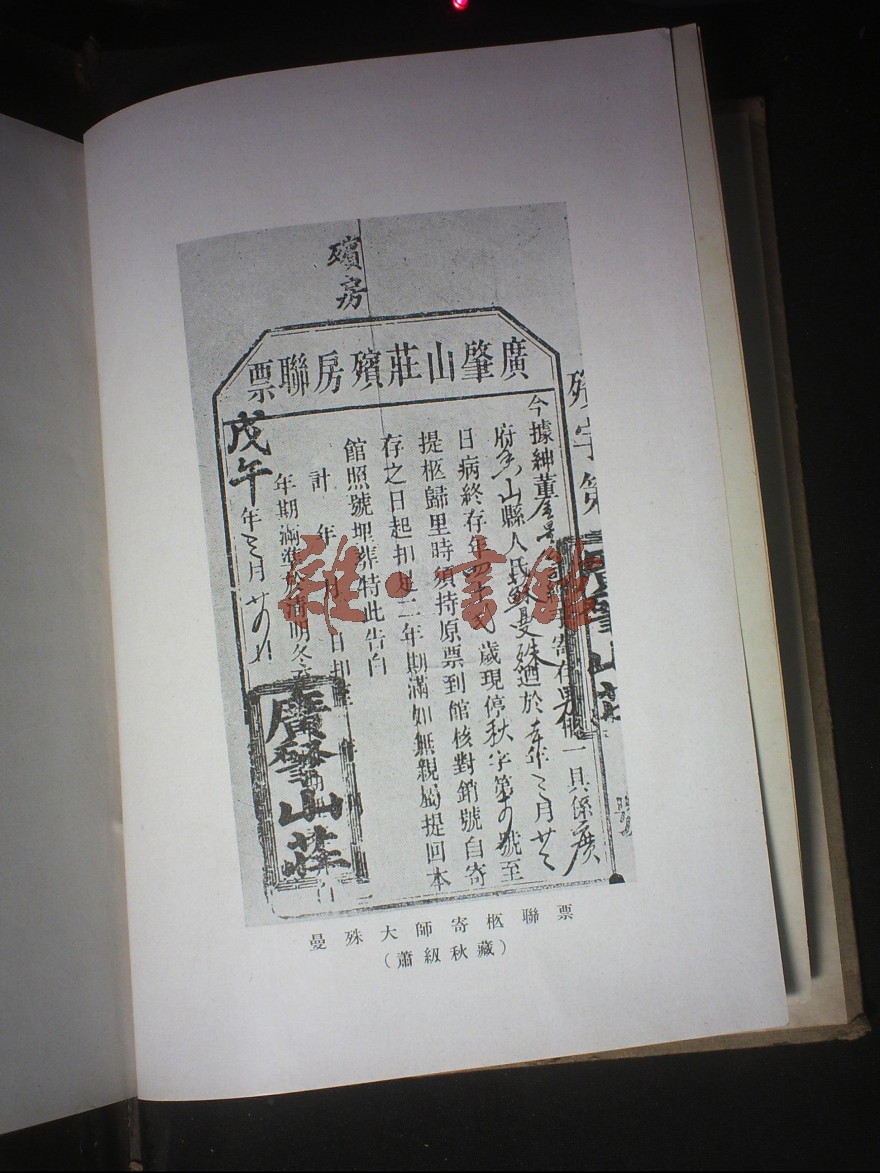 殯房
廣肇山莊殯房聯票
殯字第
廣肇山莊
今據紳董
寄存
一具係廣
府香山縣人氏蘇曼殊廼於
年三月廿二
日病終存年
歲現停秋字第
號至
提柩歸里時須持原票到館核對銷號自寄
存之日起扣足二年期滿如無親屬提回本
館照號埋葬特此告白
計 年 月 日扣
年期滿準於清明冬至
戊午年三月廿
廣肇山莊
雜·書館
曼殊大師寄柩聯票
(蕭紉秋藏)